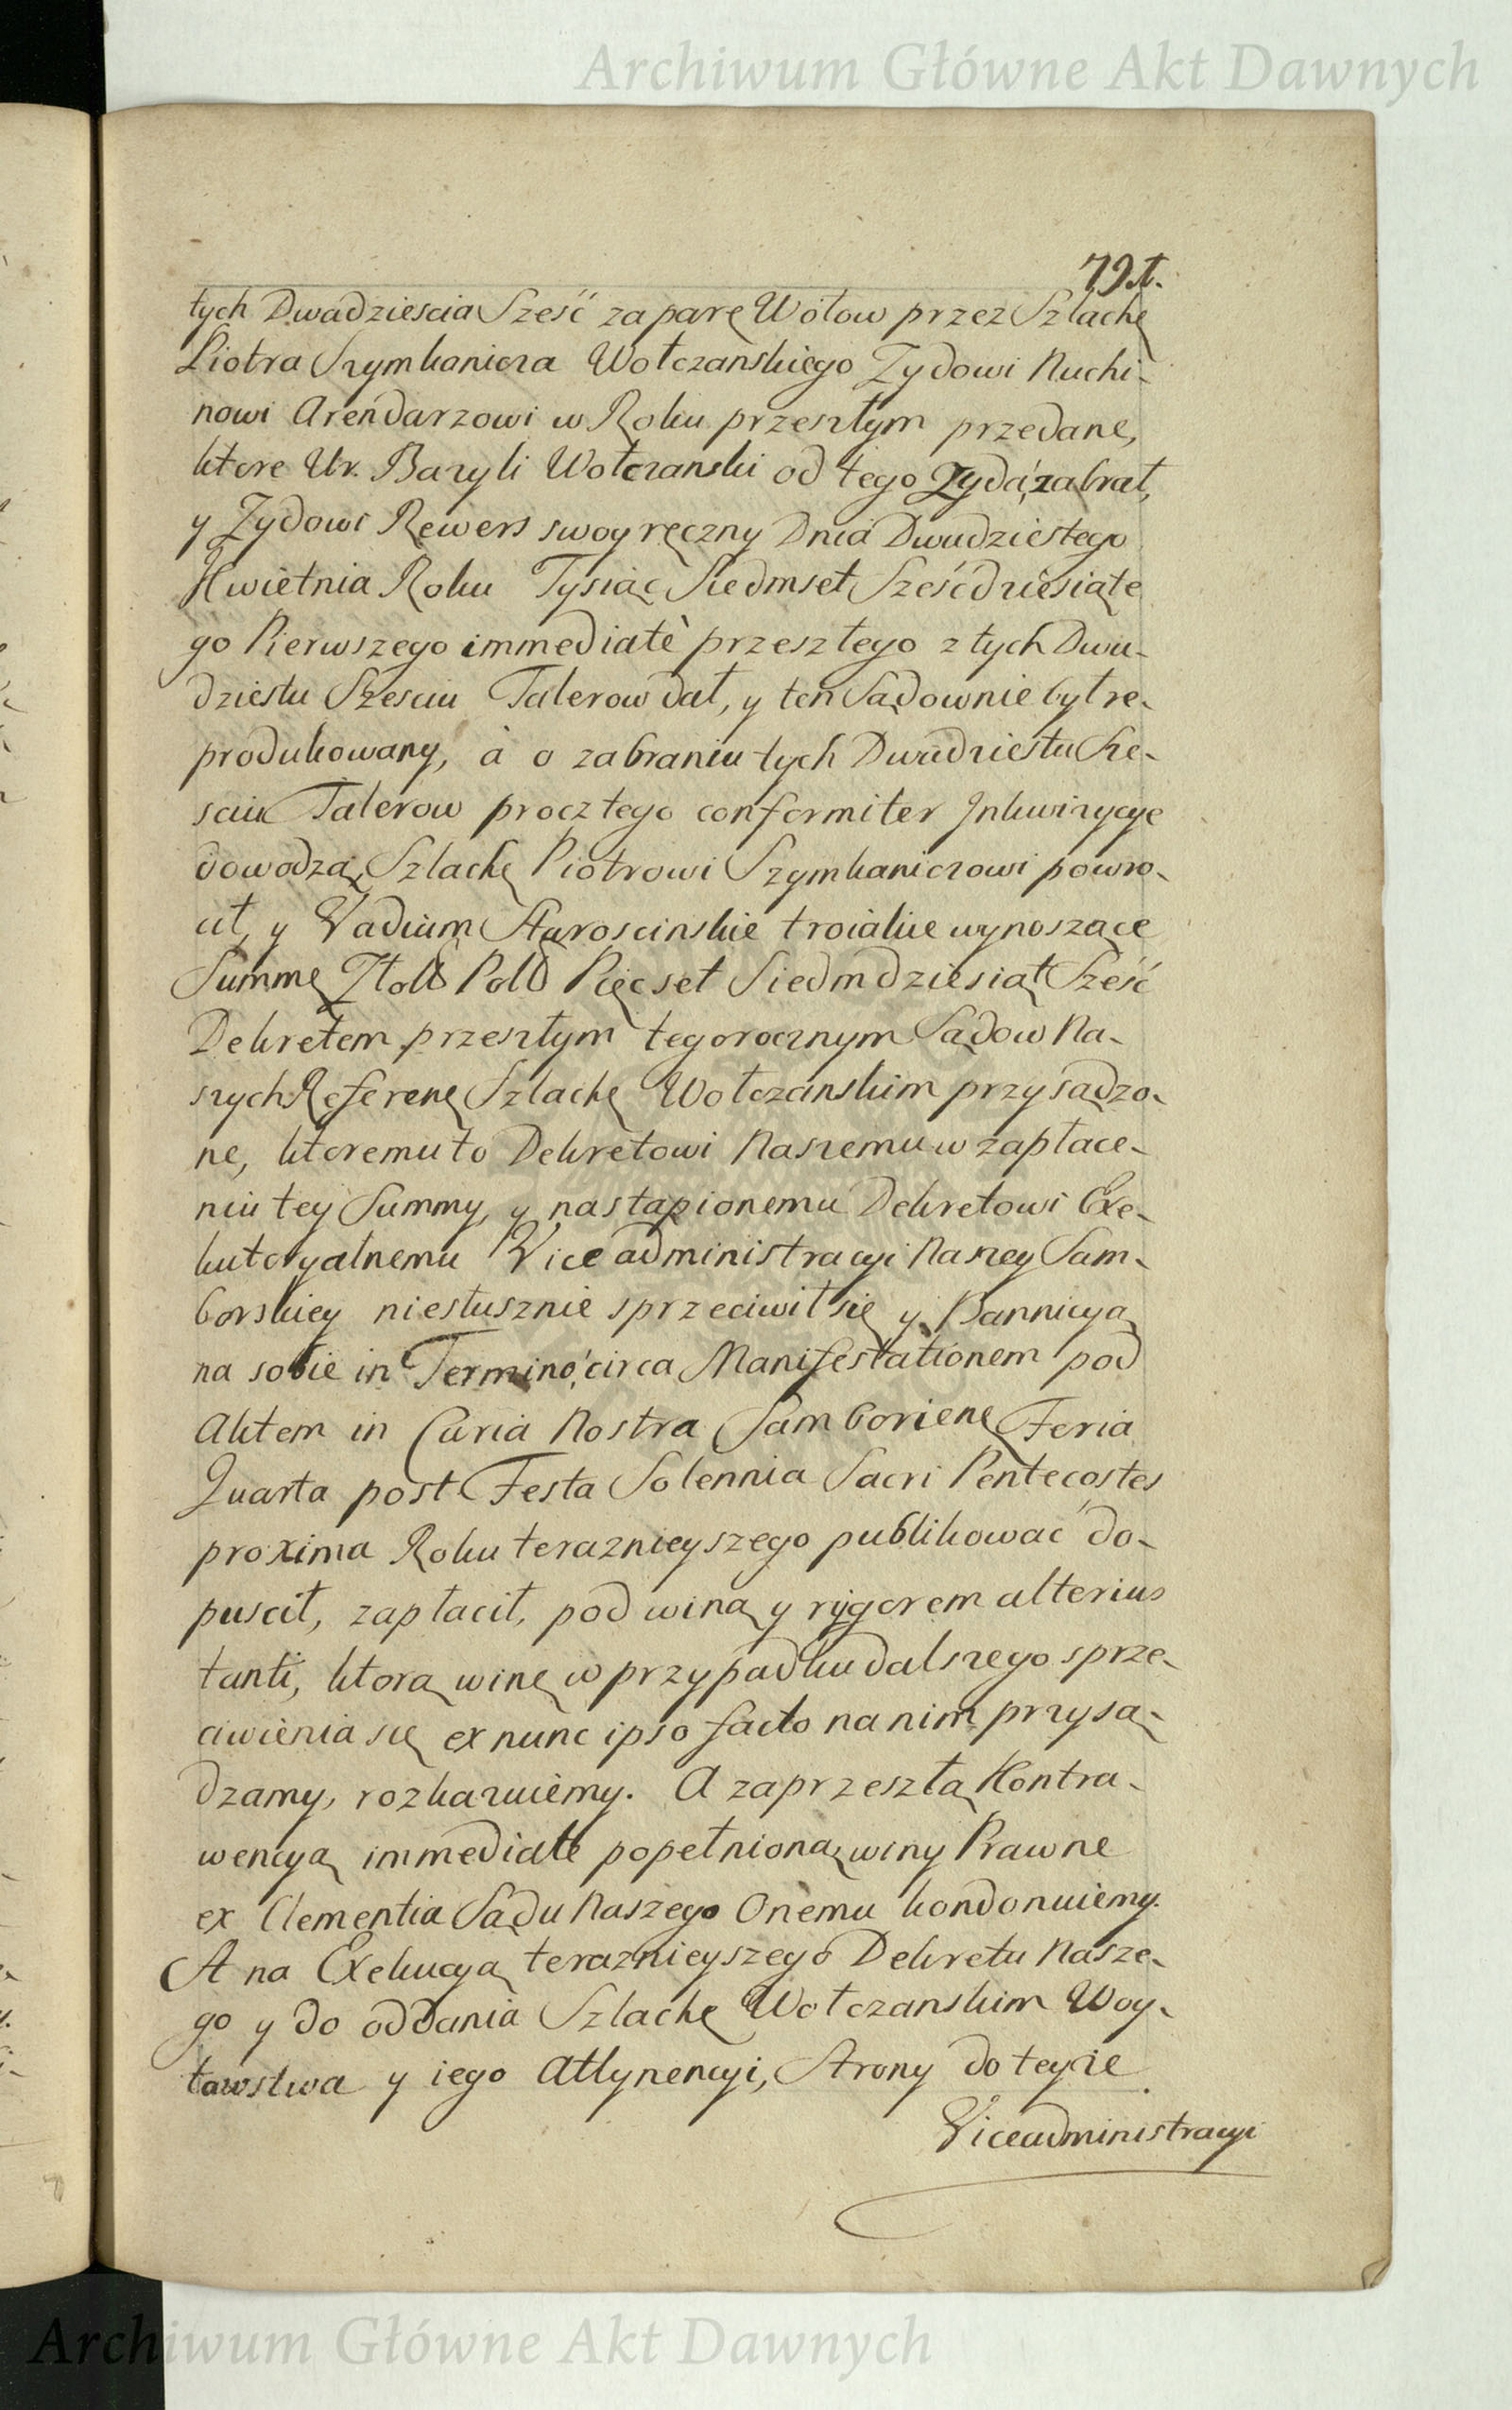 Archiwum Główne Akt Dawnych
79.
tych Dwadziescia Sześć za parę Wołow przez Szlachę
Piotra Szymkanicza Wołczanskiego Zydowi Nuchi-
nowi Arendarzowi w Roku przeszłym przedane,
ktore Ur. Bazyli Wołczanski od tego Zyda zabrał,
y Zydowi Rewers swoy ręczny Dnia Dwudziestego
Kwietnia Roku Tysiąc Siedmset Sześćdziesiąte
go Pierwszego immediatè przeszłego z tych Dwu-
dziestu Szesciu Talerow dał, y ten Sądownie był re-
produkowany, à o zabraniu tych Dwudziestu Sze-
sciu Talerow procz tego conformiter Inkwizycye
dowodzą, Szlachę Piotrowi Szymkaniczowi powro-
cił, y Vadium Staroscinskie troiakie wynoszące
Summę Złoll Poll Pięcset Siedmdziesiąt Sześć
Dekretem przeszłym tegorocznym Sądow Na-
szych Referenę Szlachę Wołczanskim przysądzo-
ne, ktoremu to Dekretowi Naszemu w zapłace-
niu tey Summy, y nastąpionemu Dekretowi Exe-
kutoryalnemu Vice administracyi Naszey Sam-
borskiey niesłusznie sprzeciwił się y Bannicyą
na sobie in Termino, circa Manifestationem pod
Aktem in Curia Nostra Samborienę Feria
Quarta post Festa Solennia Sacri Pentecostes
proxima Roku teraznieyszego publikować do-
puscił, zapłacił, pod winą y rygorem alterius
tanti, ktorą winę w przypadku dalszego sprze-
ciwienia się ex nunc ipso facto na nim przysą-
dzamy, rozkazuiemy. A za przeszłą Kontra-
wencyą immediatè popełnioną winy Prawne
ex Clementia Sądu Naszego Onemu kondonuiemy.
A na Exekucyą teraznieyszego Dekretu Nasze-
go y do oddania Szlachę Wołczanskim Woy-
towstwa y iego Attynencyi, Strony do teyże
Viceadministracyi
Archiwum Główne Akt Dawnych